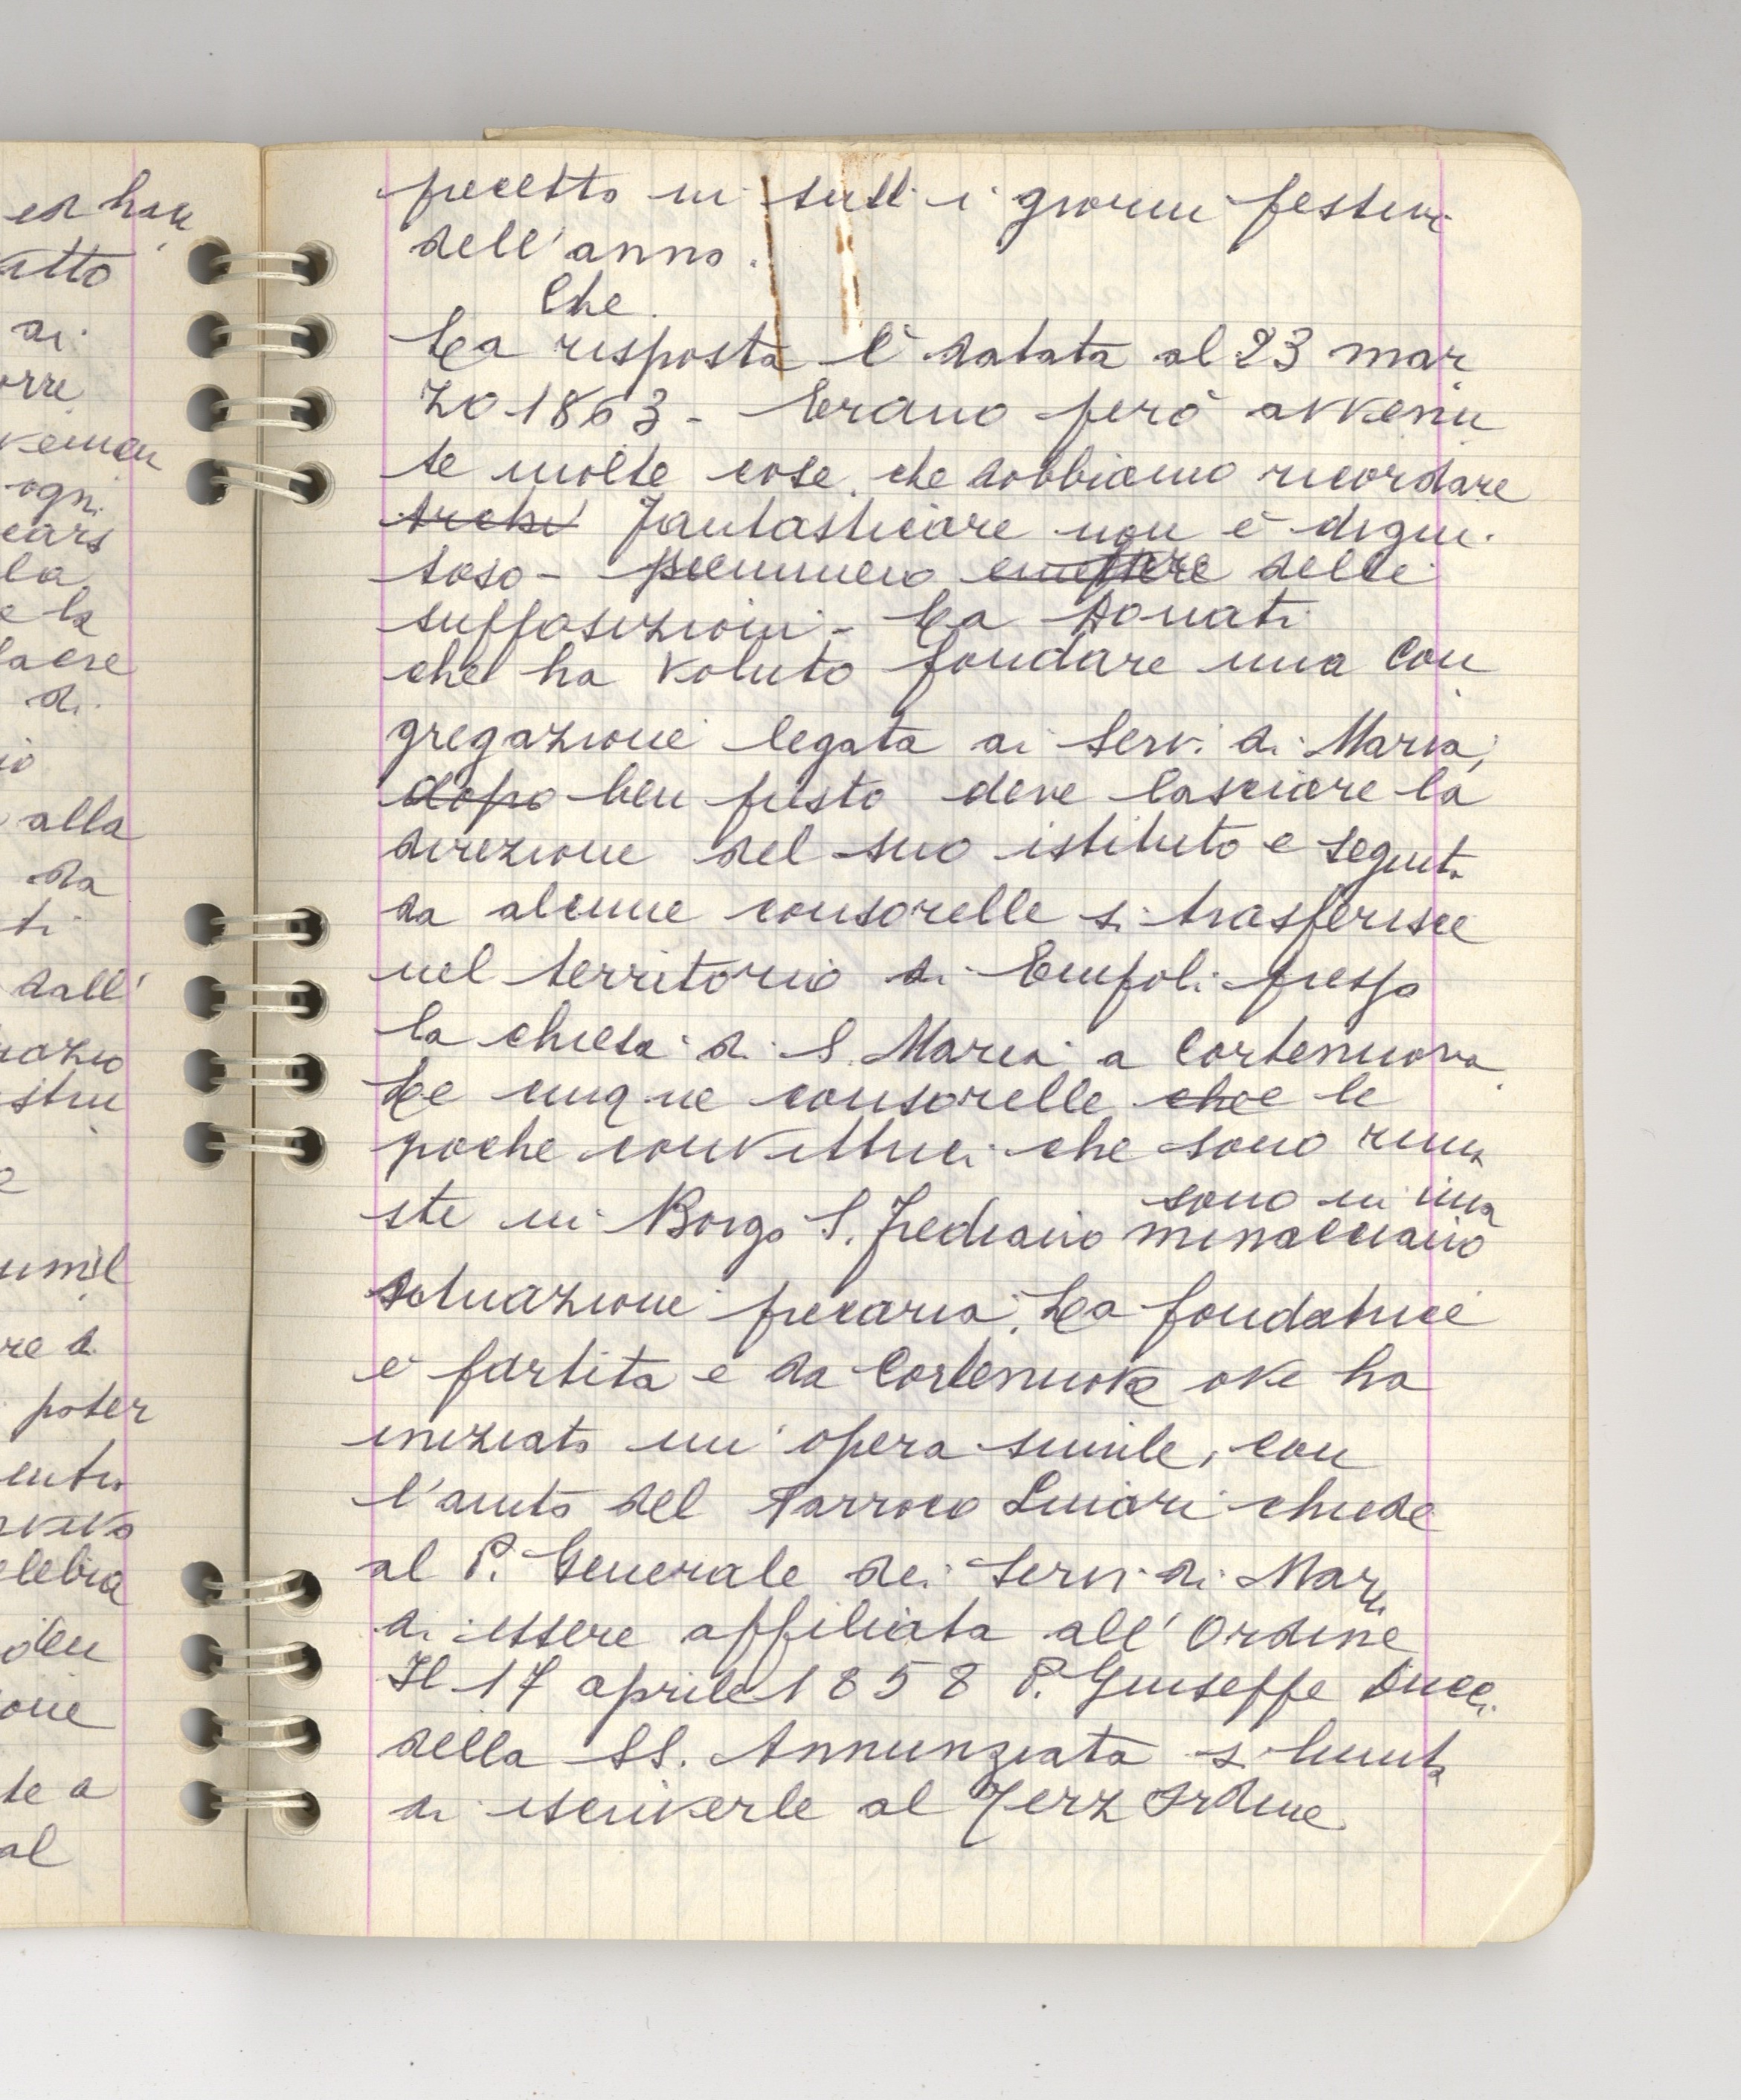 ed han
atto
ai
orre
veniван
ogni
cars
la
e la
lacre
di
io
alla
da
ti
dall'
nazio
istru
umil
re a
poter
entu
viva
elebra
den
one
te a
al
precetto in tutti i giorni festivi
dell'anno.
Che
La risposta è datata al 23 mar
zo 1863 - Erano però avvenu
te molte cose che dobbiamo ricordare
Fantasticare non è digni
toso - delle
supposizioni - La Donati
che ha voluto fondare una Con
gregazione legata ai Servi di Maria,
dopo ben presto deve lasciare la
direzione del suo istituto e seguita
da alcune consorelle si trasferisce
nel territorio di Empoli presso
la chiesa di S. Maria a Cortenuova
Le cinque consorelle che le
poche convittrici che sono rima
ste in Borgo S. Frediano minacciano
sono in una
situazione precaria. La fondatrice
è partita e da Cortenuova ove ha
iniziato un'opera simile, con
l'aiuto del Parroco chiede
al P. Generale dei Servi di Maria
di essere affiliata all'Ordine
Il 17 aprile 1858 P. Giuseppe Bucci
della SS. Annunziata si limita
di iscriverle al Terz Ordine